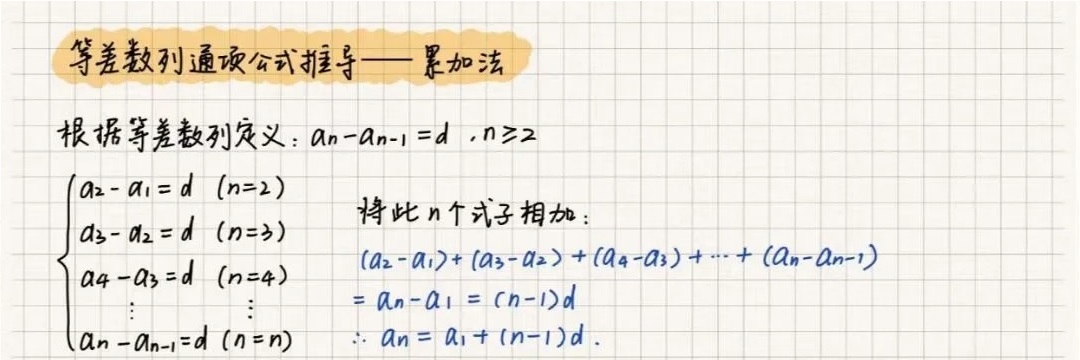 等差数列通项公式推导——累加法
根据等差数列定义：an-an-1=d ，n≥2
a2-a1=d (n=2)
a3-a2=d (n=3)
a4-a3=d (n=4)
⋮ ⋮
an-an-1=d (n=n)
将此n个式子相加：
(a2-a1)+(a3-a2)+(a4-a3)+…+(an-an-1)
=an-a1=(n-1)d
∴ an=a1+(n-1)d.